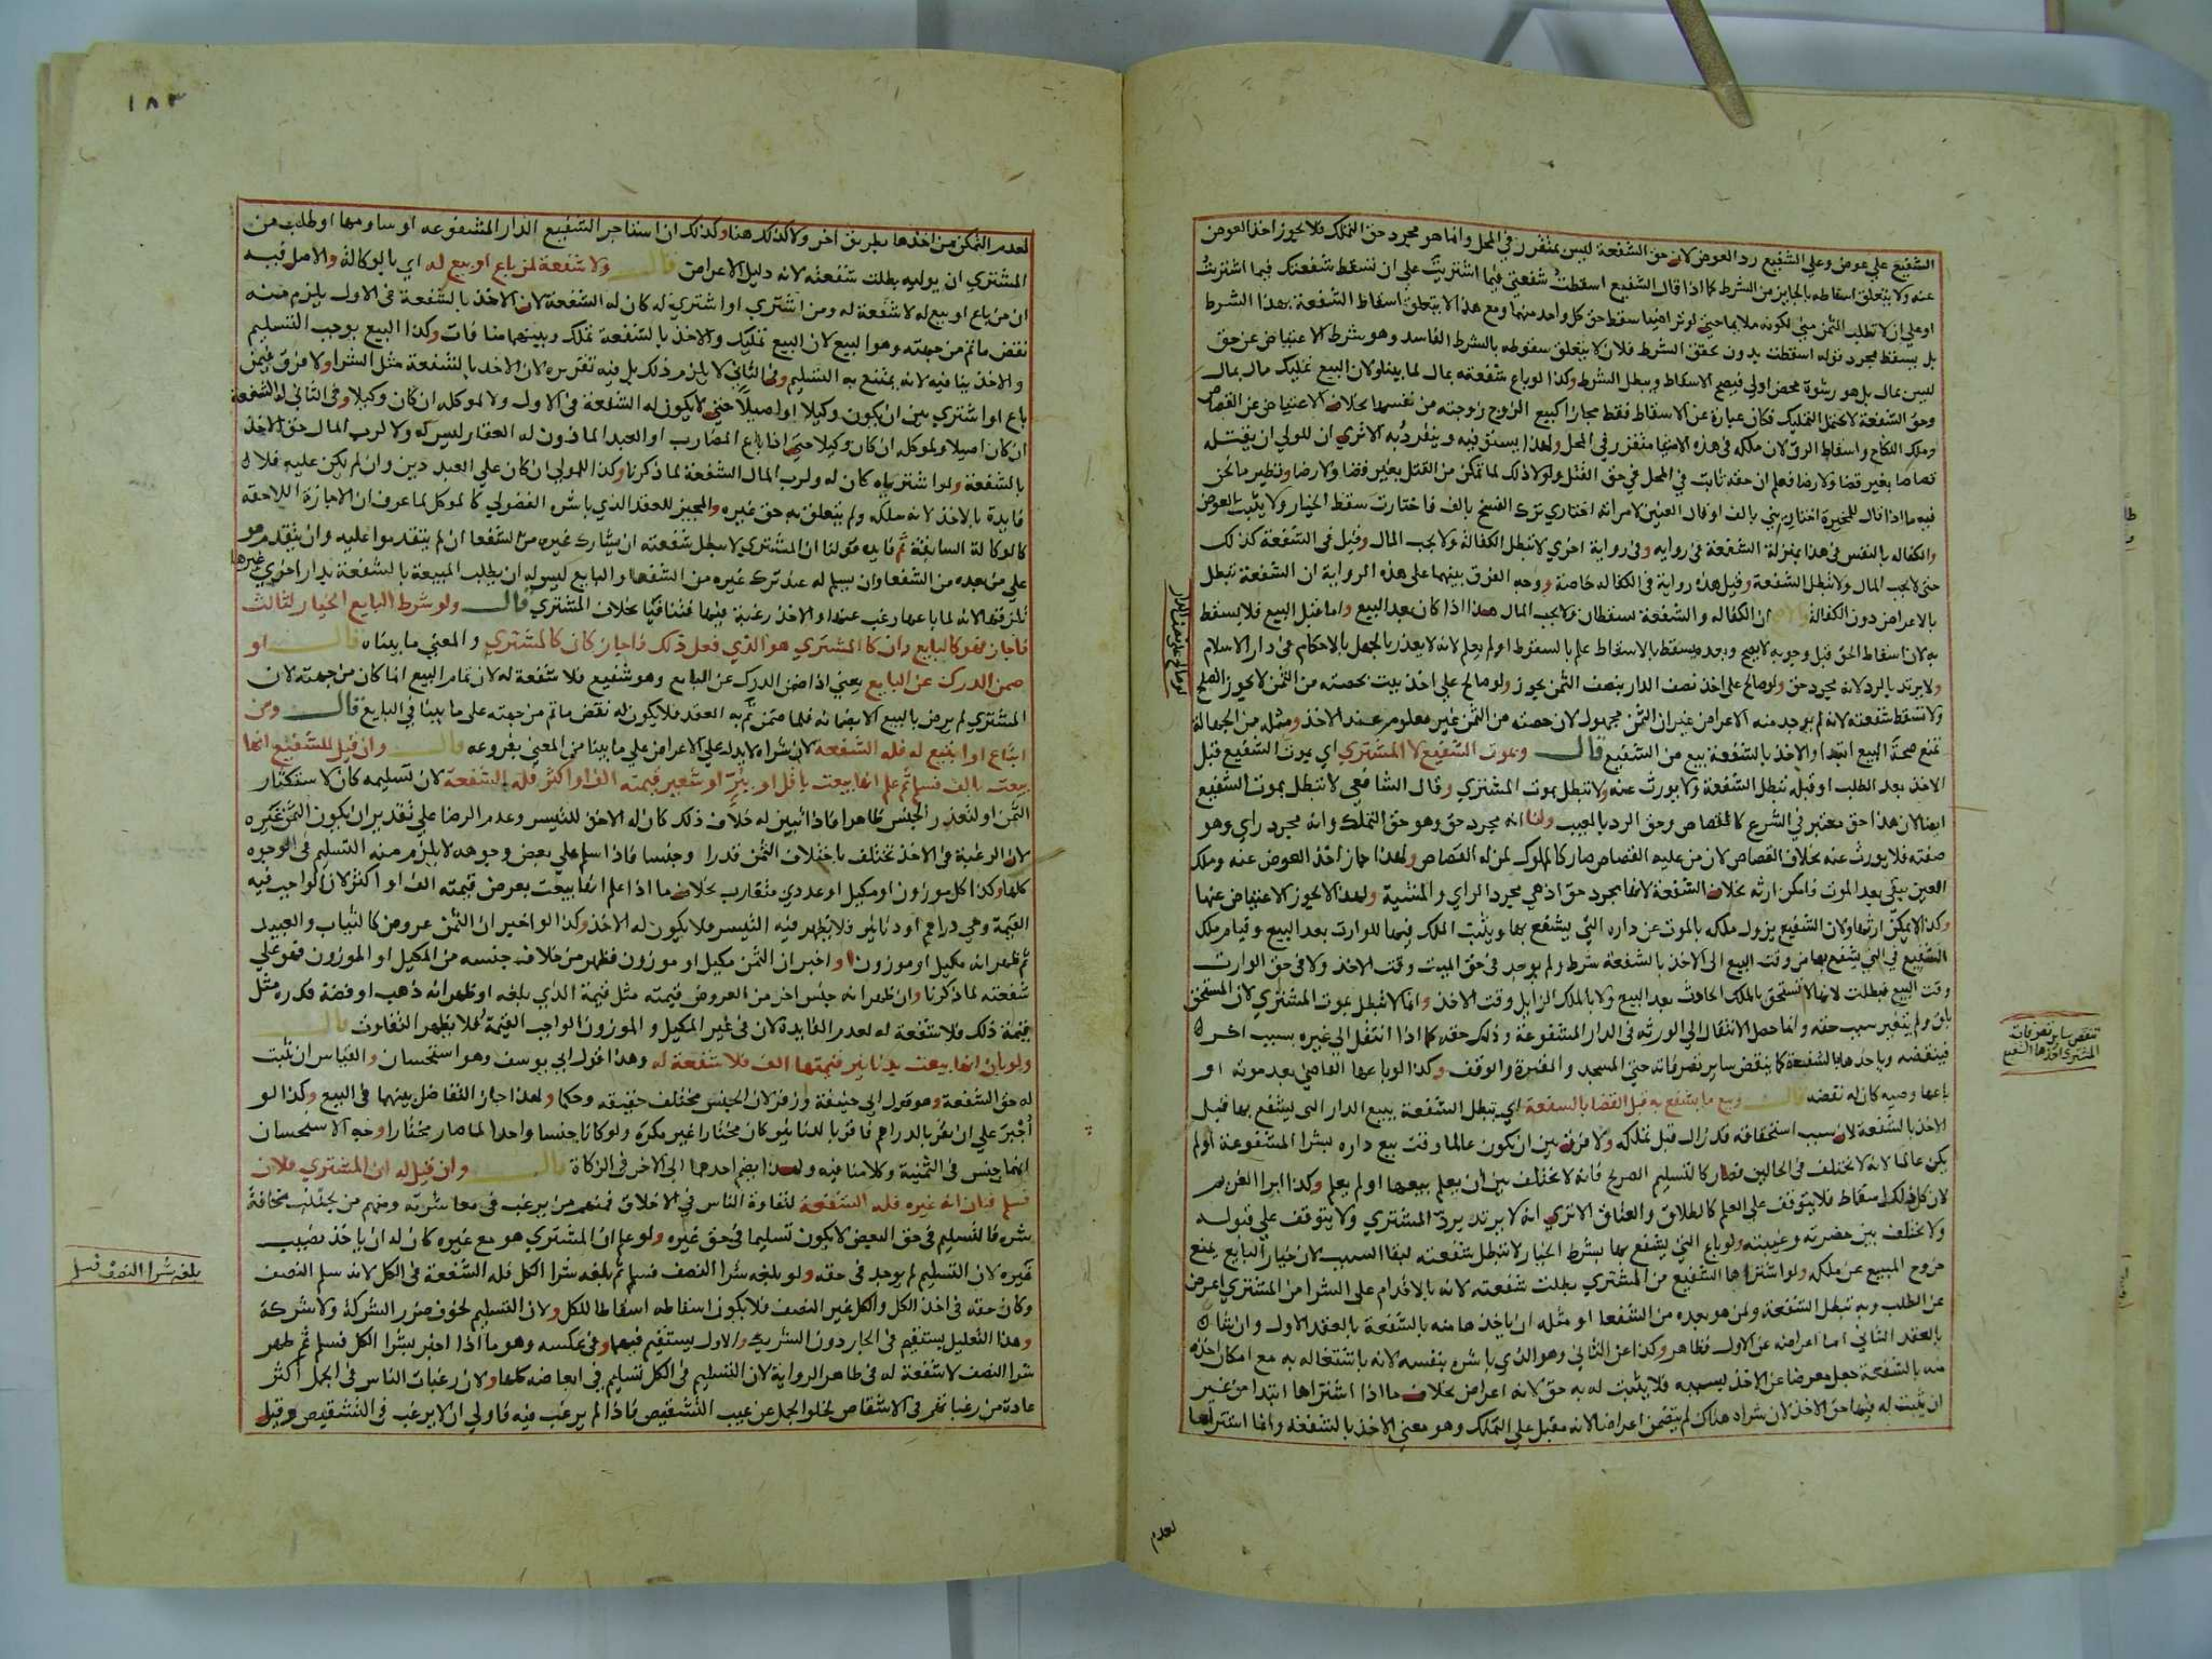 الشفيع على عوض وعلى الشفيع رد العوض لان حق الشفعة ليس بمتقرر في المحل وانما هو مجرد حق التملك فلا يجوز اخذ العوض
عنه ولا يتعلق اسقاطه بالجايز من الشرط كما اذا قال الشفيع اسقطت شفعتي فيما اشتريت على ان تسقط شفعتك فيما اشتريت
او على ان لا تطلب الثمن مني لكونه ملايما حتى لو تراضيا سقط حق كل واحد منهما ومع هذا لا يتعلق اسقاط الشفعة بهذا الشرط
بل يسقط بمجرد قوله اسقطت بدون تحقق الشرط فلان لا يتعلق سقوطه بالشرط الفاسد وهو شرط الاعتياض عن حق
ليس بمال بل هو رشوة محض اولى فيصح الاسقاط ويبطل الشرط وكذا لو باع شفعته بمال لما بينا ولان البيع تمليك مال بمال
وحق الشفعة لا يحتمل التمليك فكان عبارة عن الاسقاط فقط مجازا كبيع الزوج زوجته من نفسها بخلاف الاعتياض عن القصاص
وملك النكاح واسقاط الرق لان ملكه في هذه الاشيا متقرر في المحل ولهذا يستوفيه وينفرد به الا ترى ان للولي ان يقتله
قصاصا بغير قضا ولا رضا فعلم ان حقه ثابت في المحل في حق القتل ولولا ذلك لما تمكن من القتل بغير قضا ولا رضا ونظير ما نحن
فيه ما اذا قال للمخيرة اختاريني بالف او قال العنين لامراته اختاري ترك الفسخ بالف فاختارت سقط الخيار ولا يثبت العوض
والكفاله بالنفس في هذا بمنزلة الشفعة في روايه وفي رواية اخرى لا تبطل الكفالة ولا يجب المال وقيل في الشفعة كذلك
حتى لا يجب المال ولا تبطل الشفعة وقيل هذه رواية في الكفاله خاصة ووجه الفرق بينهما على هذه الرواية ان الشفعة تبطل
بالاعراض دون الكفالة والاصح ان الكفاله والشفعة تسقطان ولا يجب المال هذا اذا كان بعد البيع واما قبل البيع فلا يسقط
به لان اسقاط الحق قبل وجوبه لا يصح وبعده يسقط بالاسقاط علم بالسقوط او لم يعلم لانه لا يعذر بالجهل بالاحكام في دار الاسلام
ولا يرتد بالرد لانه مجرد حق ولو صالح على اخذ نصف الدار بنصف الثمن يجوز ولو صالح على اخذ بيت بحصته من الثمن لا يجوز الصلح
ولا تسقط شفعته لانه لم يوجد منه الاعراض غير ان الثمن مجهول لان حصته من الثمن غير معلوم عند الاخذ ومثله من الجهالة
تمنع صحة البيع ابتدا والاخذ بالشفعة بيع من الشفيع قال وبموت الشفيع لا المشتري اي بموت الشفيع قبل
الاخذ بعد الطلب او قبله تبطل الشفعة ولا يورث عنه ولا تبطل بموت المشتري وقال الشافعي لا تبطل بموت الشفيع
ايضا لان هذا حق معتبر في الشرع كالقصاص وحق الرد بالعيب ولنا انه مجرد حق وهو حق التملك وانه مجرد راي وهو
صفته فلا يورث عنه بخلاف القصاص لان من عليه القصاص صار كالمملوك لمن له القصاص ولهذا جاز اخذ العوض عنه وملك
العين يبقى بعد الموت فامكن ارثه بخلاف الشفعة لانها مجرد حق اذ هي مجرد الراي والمشية ولهذا لا يجوز الاعتياض عنها
وكذا لا يمكن ارثها ولان الشفيع يزول ملكه بالموت عن داره التي يشفع بها ويثبت الملك فيها للوارث بعد البيع وقيام ملك
الشفيع في التي يشفع بها من وقت البيع الى الاخذ بالشفعة شرط ولم يوجد في حق الميت وقت الاخذ ولا في حق الوارث
وقت البيع فبطلت لانها لا تستحق بالملك الحادث بعد البيع ولا بالملك الزايل وقت الاخذ وانما لا تبطل بموت المشتري لان المستحق
باق ولم يتغير سبب حقه وانما حصل الانتقال الى الورثه في الدار المشفوعة وذلك حقه كما اذا انتقل الى غيره بسبب اخر
فينقضه وياخذها بالشفعة كما ينقض ساير تصرفاته حتى المسجد والمقبرة والوقف وكذا لو باعها القاضي بعد موته او
باعها وصيه كان له نقضه قال وبيع ما يشفع به قبل القضا بالشفعة اي تبطل الشفعة ببيع الدار التي يشفع بها قبل
الاخذ بالشفعة لان سبب استحقاقه قد زال قبل تملكه ولا فرق بين ان يكون عالما وقت بيع داره بشرا المشفوعة او لم
يكن عالما لانه لا يختلف في الحالين فصار كالتسليم الصريح فانه لا يختلف بين ان يعلم ببيعها او لم يعلم وكذا ابرا الغريم
لان كل ذلك اسقاط فلا يتوقف على العلم كالطلاق والعتاق الا ترى انه لا يرتد برد المشتري ولا يتوقف على قبوله
ولا يختلف بين حضرته وغيبته ولو باع التي يشفع بها بشرط الخيار لا تبطل شفعته لبقا السبب لان خيار البايع يمنع
خروج المبيع عن ملكه ولو اشتراها الشفيع من المشتري بطلت شفعته لانه بالاقدام على الشرا من المشتري اعرض
عن الطلب وبه تبطل الشفعة ولمن هو بعده من الشفعا او مثله ان ياخذها منه بالشفعة بالعقد الاول وان شا
بالعقد الثاني اما اعراضه عن الاول فظاهر وكذا عن الثاني وهو الذي باشره بنفسه لانه باشتغاله به مع امكان اخذه
منه بالشفعة جعل معرضا عن الاخذ بسببه فلا يثبت له به حق لانه اعراض بخلاف ما اذا اشتراها ابتدا من غير
ان يثبت له فيها حق الاخذ لان شراه هناك لم يتضمن اعراضا لانه مقبل على التملك وهو معنى الاخذ بالشفعة وانما اشتراها
تنقض ساير تصرفات
المشتري اخذها الشفيع
لعدم
١٨٣
لعدم التمكن من اخذها بطريق اخر ولا كذلك هنا وكذلك ان استاجر الشفيع الدار المشفوعه او ساومها او طلب من
المشتري ان يوليه بطلت شفعته لانه دليل الاعراض قال ولا شفعة لمن باع او بيع له اي بالوكالة والاصل فيه
ان من باع او بيع له لا شفعة له ومن اشترى او اشتري له كان له الشفعة لان الاخذ بالشفعة في الاول يلزم منه
نقض ما تم من جهته وهو البيع لان البيع تمليك والاخذ بالشفعة تملك وبينهما منافات وكذا البيع يوجب التسليم
والاخذ ينافيه لانه يمتنع به التسليم وفي الثاني لا يلزم ذلك بل فيه تقريره لان الاخذ بالشفعة مثل الشرا ولا فرق فيمن
باع او اشترى بين ان يكون وكيلا او اصيلا حتى لا يكون له الشفعة في الاول ولا لموكله ان كان وكيلا وفي الثاني له الشفعة
ان كان اصيلا ولموكله ان كان وكيلا حتى اذا باع المضارب او العبد الماذون له العقار ليس له ولا لرب المال حق الاخذ
بالشفعة ولو اشترياه كان له ولرب المال الشفعة لما ذكرنا وكذا للمولى ان كان على العبد دين وان لم يكن عليه فلا
فايدة بالاخذ لانه ملكه ولم يتعلق به حق غيره والمجيز للعقد الذي باشره الفضولي كالموكل لما عرف ان الاجازة اللاحقة
كالوكالة السابقة ثم فايده قولنا ان المشتري لا تبطل شفعته ان يشارك غيره من الشفعا ان لم يتقدموا عليه وان يتقدم هو
على من بعده من الشفعا وان يسلم له عند ترك غيره من الشفعا والبايع ليس له ان يطلب المبيعة بالشفعة بدار اخرى غيرها
لمن قبله لانه لما باعها رغب عنها والاخذ رغبة فيها فتنافيا بخلاف المشتري قال ولو شرط البايع الخيار لثالث
فاجاز فهو كالبايع وان كان المشتري هو الذي فعل ذلك فاجاز كان كالمشتري والمعنى ما بيناه قال او
ضمن الدرك عن البايع يعني اذا ضمن الدرك عن البايع وهو شفيع فلا شفعة له لان تمام البيع انما كان من جهته لان
المشتري لم يرض بالبيع الا بضمانه فلما ضمن تم به العقد فلا يكون له نقض ما تم من جهته على ما بينا في البايع قال ومن
ابتاع او ابتيع له فله الشفعة لان شراه لا يدل على الاعراض على ما بينا من المعنى بفروعه قال وان قيل للشفيع انها
بيعت بالف فسلم ثم علم انها بيعت باقل او ببر او شعير قيمته الف او اكثر فله الشفعة لان تسليمه كان لاستكثار
الثمن او لتعذر الجنس ظاهرا فاذا تبين له خلاف ذلك كان له الاخذ للتيسر وعدم الرضا على تقدير ان يكون الثمن غيره
لان الرغبة في الاخذ تختلف باختلاف الثمن قدرا وجنسا فاذا سلم على بعض وجوهه لا يلزم منه التسليم في الوجوه
كلها وكذا كل موزون او مكيل او عددي متقارب بخلاف ما اذا علم انها بيعت بعرض قيمته الف او اكثر لان الواجب فيه
القيمة وهي دراهم او دنانير فلا يظهر فيه التيسر فلا يكون له الاخذ وكذا لو اخبر ان الثمن عروض كالثياب والعبيد
ثم ظهر انه مكيل او موزون او اخبر ان الثمن مكيل او موزون فظهر من خلاف جنسه من المكيل او الموزون فهو على
شفعته لما ذكرنا وان ظهر انه جنس اخر من العروض قيمته مثل قيمة الذي بلغه او ظهر انه ذهب او فضة قدره مثل
قيمة ذلك فلا شفعة له لعدم الفايدة لان في غير المكيل والموزون الواجب القيمة فلا يظهر التفاوت قال
ولو بان انها بيعت بدنانير قيمتها الف فلا شفعة له وهذا قول ابي يوسف وهو استحسان والقياس ان تثبت
له حق الشفعة وهو قول ابي حنيفة وزفر لان الجنس مختلف حقيقه وحكما ولهذا جاز التفاضل بينهما في البيع وكذا لو
اجبر على ان يقر بالدراهم فاقر بالدنانير كان مختارا غير مكره ولو كانا جنسا واحدا لما صار مختارا وجه الاستحسان
انهما جنس في الثمنية وكلامنا فيه ولهذا يضم احدهما الى الاخر في الزكاة قال وان قيل له ان المشتري فلان
فسلم فبان انه غيره فله الشفعة لتفاوت الناس في الاخلاق فمنهم من يرغب في معاشرته ومنهم من يجتنب مخافة
شره فالتسليم في حق البعض لا يكون تسليما في حق غيره ولو علم ان المشتري هو مع غيره كان له ان ياخذ نصيب
غيره لان التسليم لم يوجد في حقه ولو بلغه شرا النصف فسلم ثم بلغه شرا الكل فله الشفعة في الكل لانه سلم النصف
وكان حقه في اخذ الكل والكل غير النصف فلا يكون اسقاطه اسقاطا للكل ولان التسليم لخوف ضرر الشركة ولا شركة
وهذا التعليل يستقيم في الجار دون الشريك والاول يستقيم فيهما وفي عكسه وهو ما اذا اخبر بشرا الكل فسلم ثم ظهر
شرا النصف لا شفعة له في ظاهر الرواية لان التسليم في الكل تسليم في ابعاضه كلها ولان رغبات الناس في الجمل اكثر
عادة من رغباتهم في الاشقاص لخلو الجمل عن عيب التشقيص فاذا لم يرغب فيه فاولى ان لا يرغب في التشقيص وقيل
بلغه شرا النصف فسلم